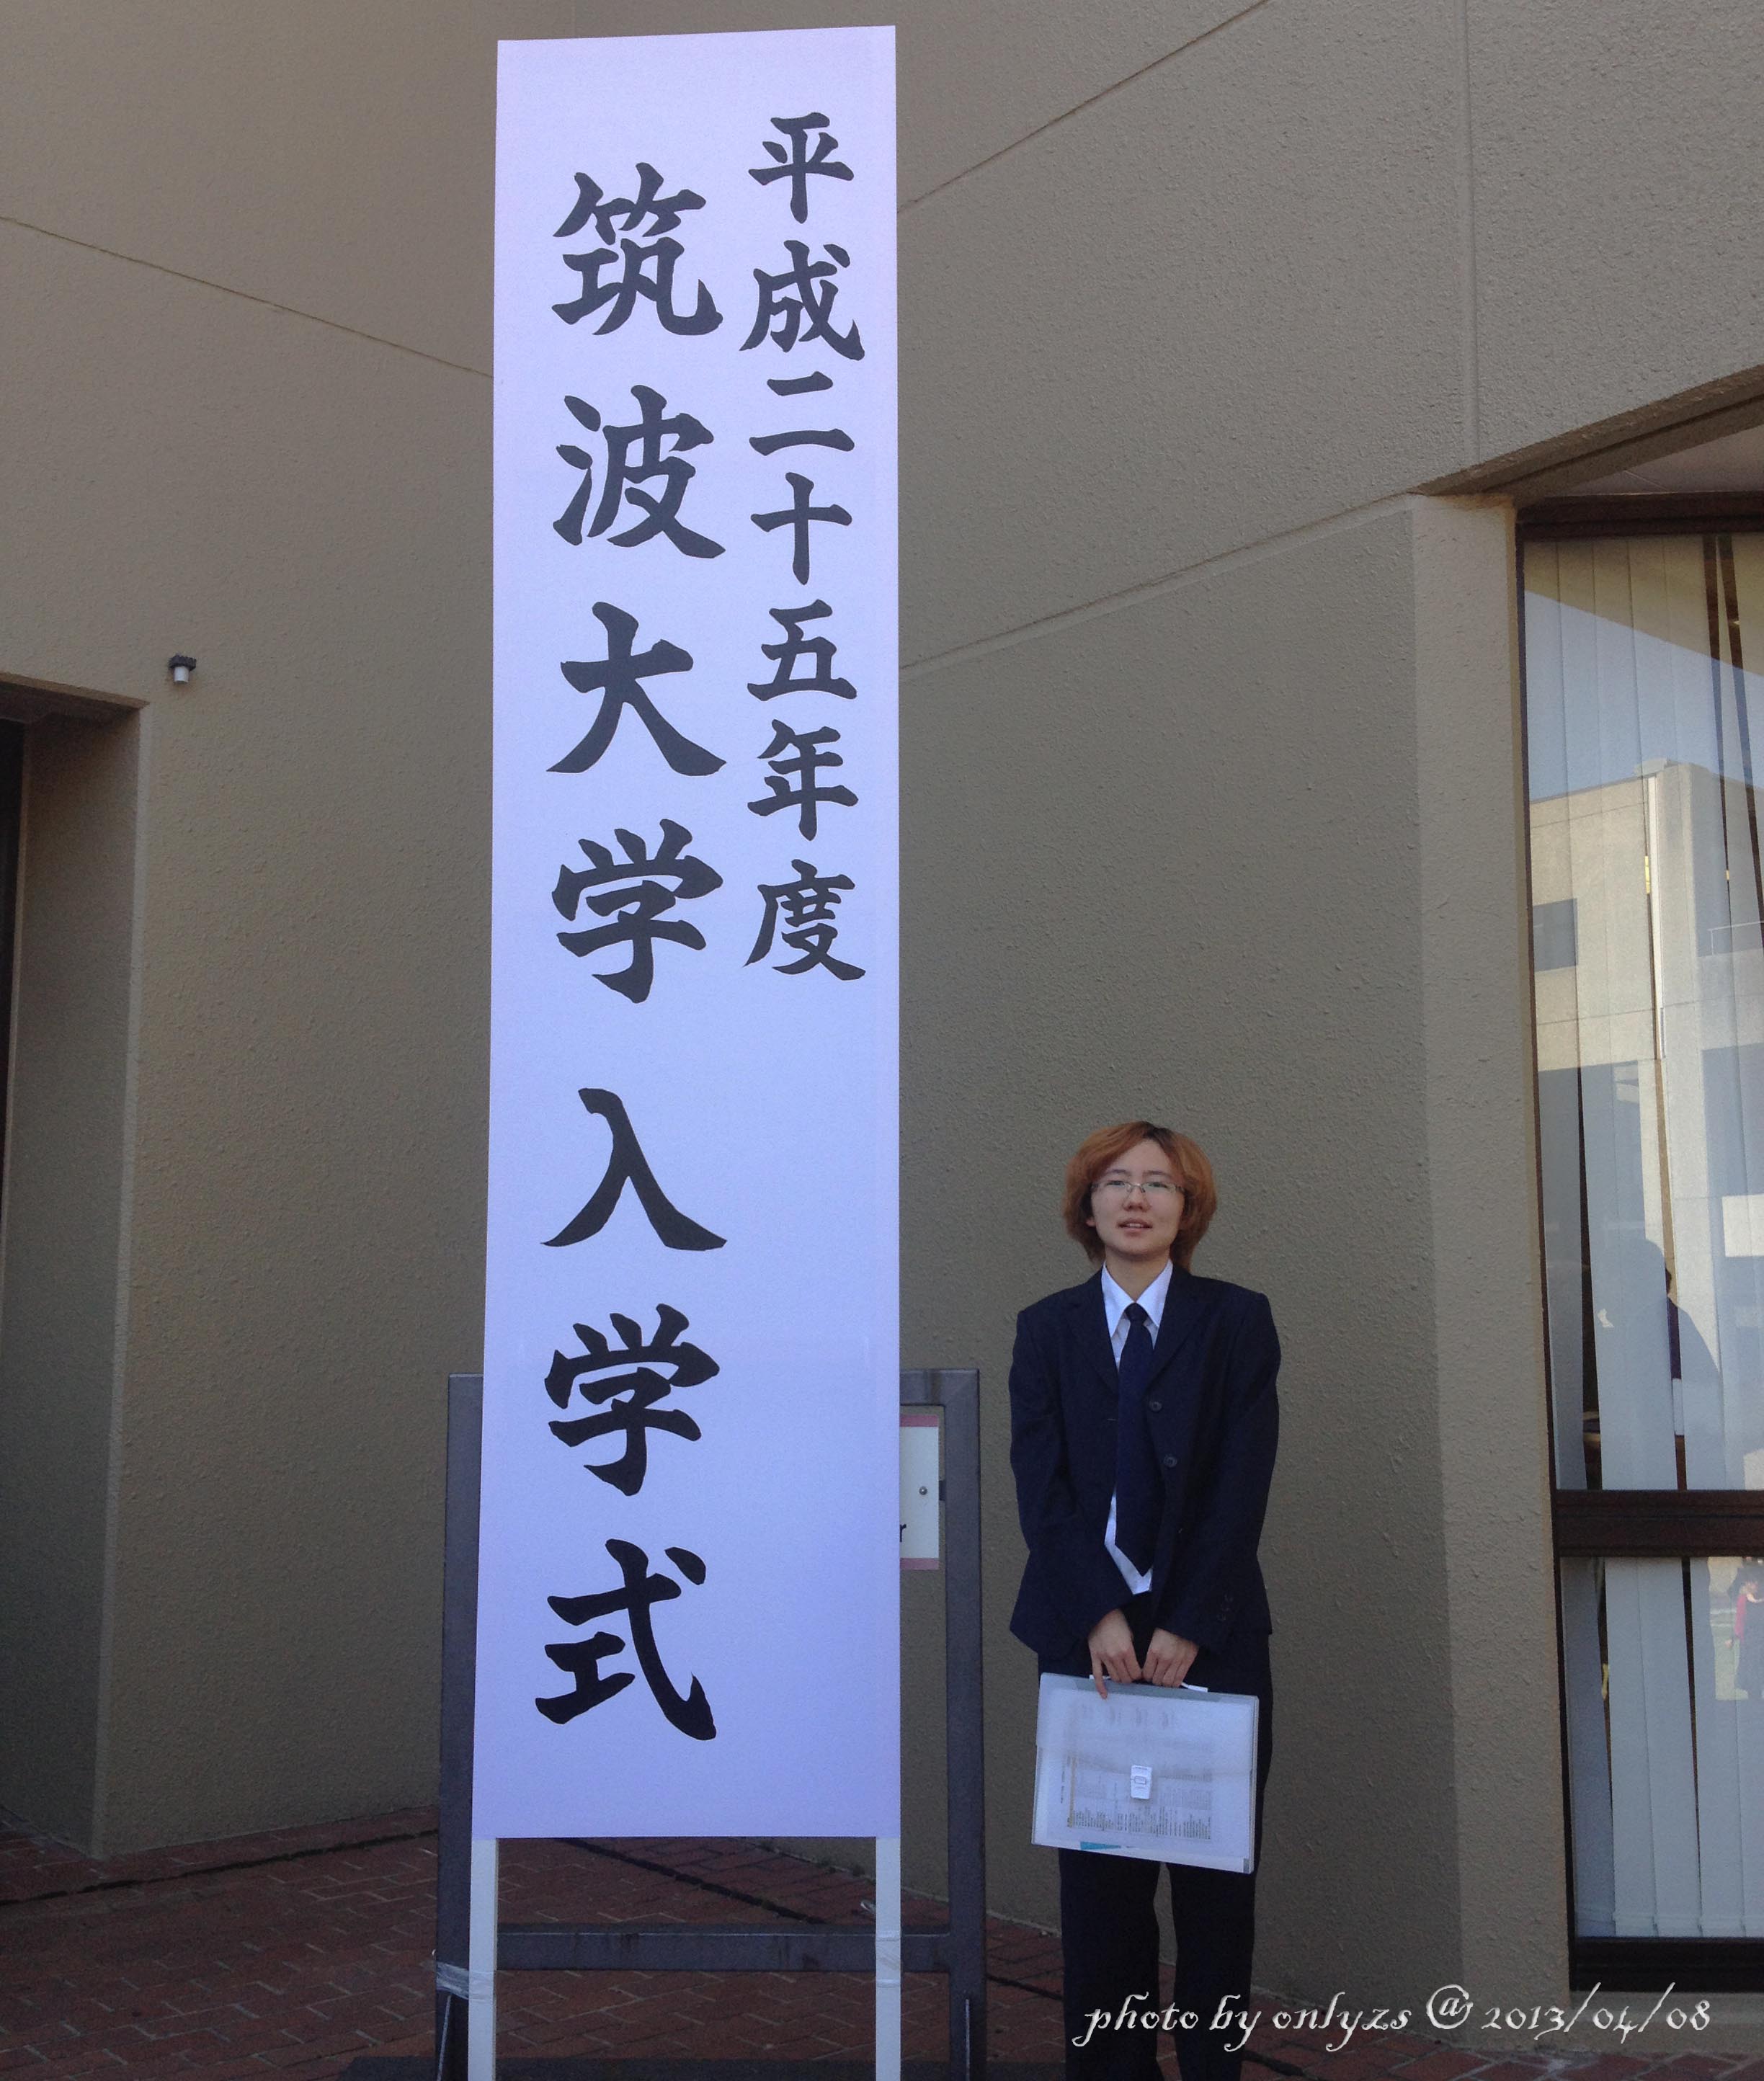 平成二十五年度
筑波大学 入学式
r
photo by onlyzs @ 2013/04/08